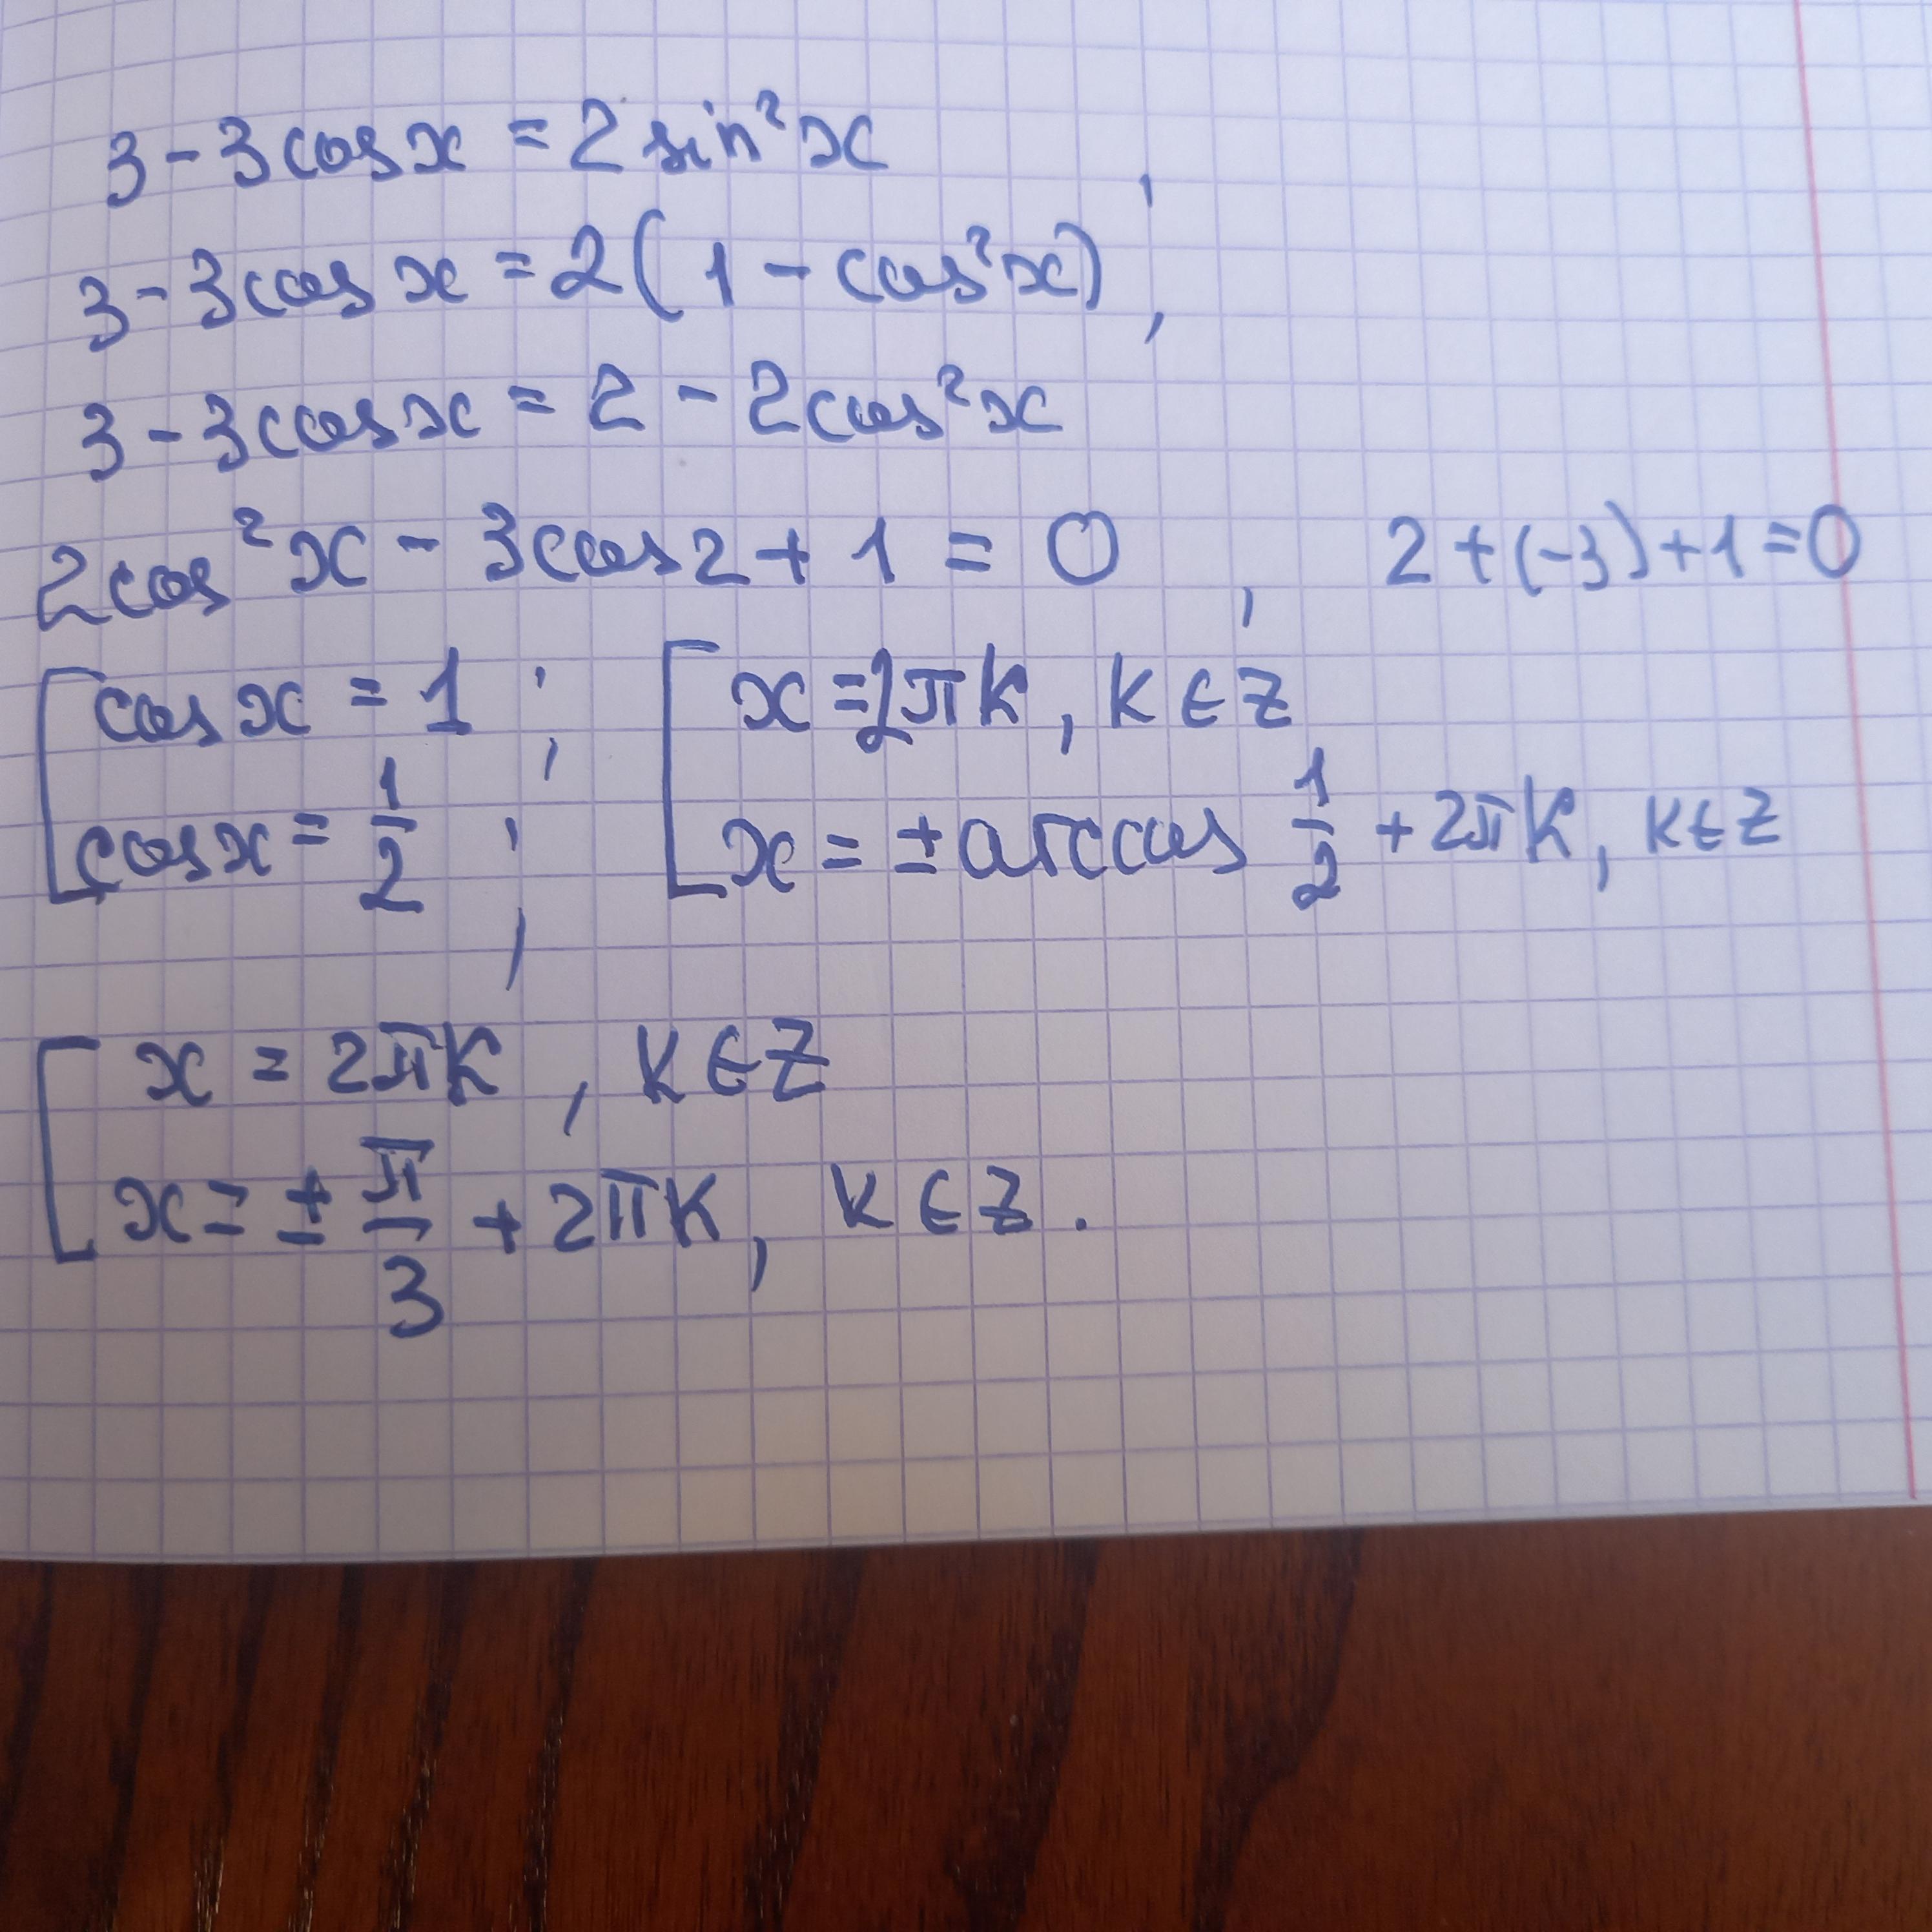 3 - 3cos x = 2 sin² x ;
3 - 3cos x = 2(1 - cos² x) ;
3 - 3cos x = 2 - 2cos² x
2cos² x - 3cos 2 + 1 = 0 , 2 + (-3) + 1 = 0
[ cos x = 1 ; [ x = 2πk, k ∈ Z
cos x = 1/2 ; x = ± arccos 1/2 + 2πk, k ∈ Z
[ x = 2πk, k ∈ Z
x = ± π/3 + 2πk, k ∈ Z.